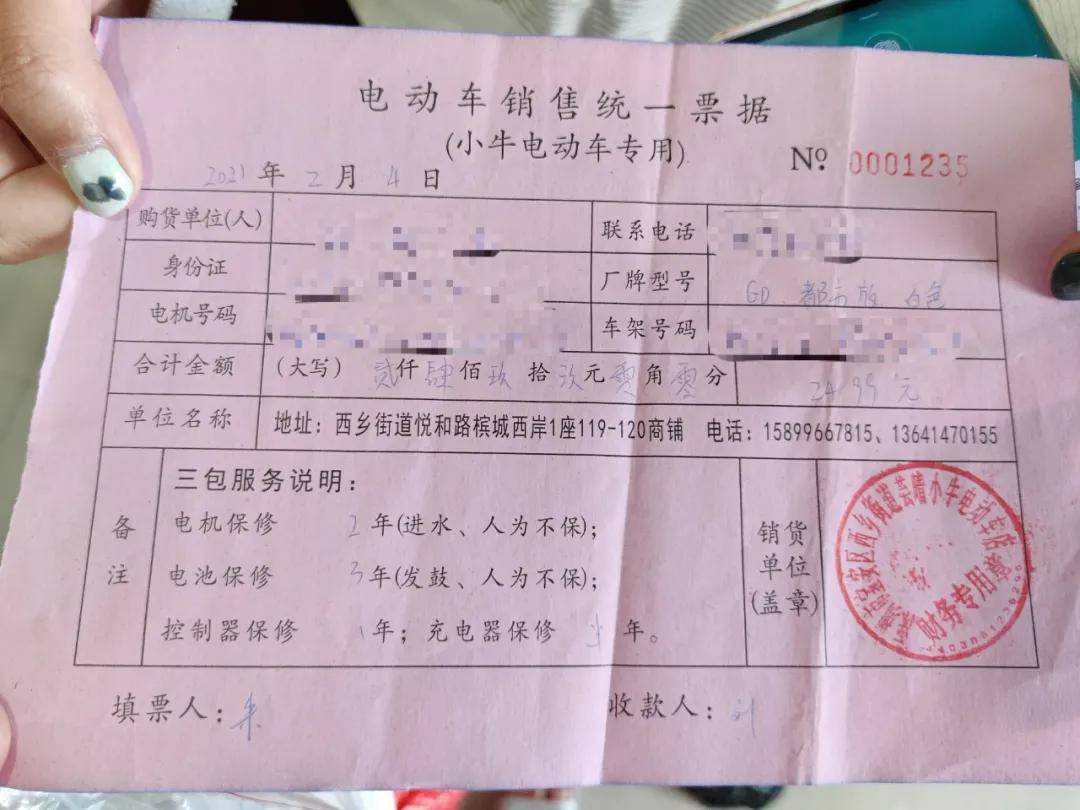 电动车销售统一票据
(小牛电动车专用)
№ 0001235
2021年2月4日
购货单位(人)
联系电话
身份证
厂牌型号 GD 都市版 白色
电机号码
车架号码
合计金额 (大写) 贰仟肆佰玖拾玖元零角零分 2499元。
单位名称 地址：西乡街道悦和路槟城西岸1座119-120商铺 电话：15899667815、13641470155
备注
三包服务说明：
电机保修 2年(进水、人为不保)；
电池保修 3年(发鼓、人为不保)；
控制器保修 1年；充电器保修 半年。
销货单位(盖章)
宝安区西乡街道芸晴小牛电动车店
财务专用章
填票人：朱
收款人：